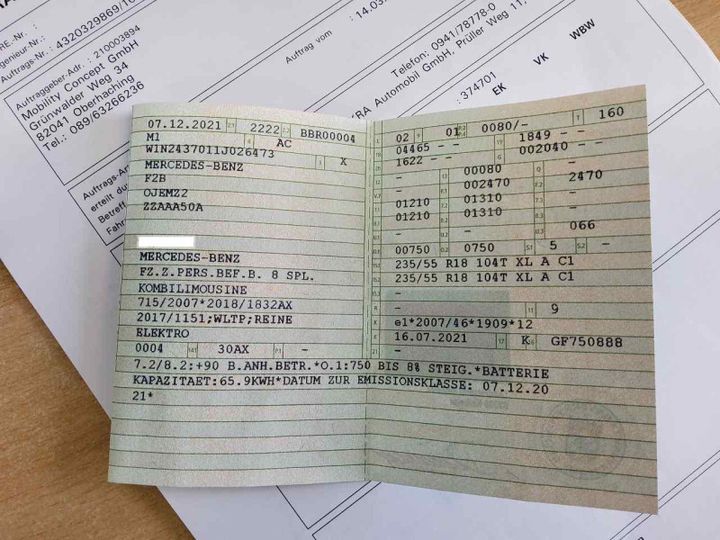 RE.-Nr.:
Ingenieur-Nr.:
Auftrags-Nr.: 4320329869/10
Auftraggeber-Adr.: 210003894
Mobility Concept GmbH
Grünwalder Weg 34
82041 Oberhaching
Tel.: 089/63266236
Auftrag vom : 14.03.
Telefon: 0941/78778-0
Automobil GmbH, Prüller Weg 11,
: 374701
EK VK WBW
Auftrags-An
erteilt du
Betreff
Fah
07.12.2021 2222 BBR00004
M1 AC
W1N2437011J026473 X
MERCEDES-BENZ
F2B
0JEMZ2
ZZAAA50A
MERCEDES-BENZ
FZ.Z.PERS.BEF.B. 8 SPL.
KOMBILIMOUSINE
715/2007*2018/1832AX
2017/1151;WLTP;REINE
ELEKTRO
0004 30AX -
02 01 0080/- 160
04465 - - 1849 - -
1622 - - 002040 - -
- 00080 -
- 002470 2470
01210 01310 -
01210 01310 -
- - 066
00750 0750 5 -
235/55 R18 104T XL A C1
235/55 R18 104T XL A C1
-
- 9
e1*2007/46*1909*12
16.07.2021 K GF750888
-
7.2/8.2:+90 B.ANH.BETR.*O.1:750 BIS 8% STEIG.*BATTERIE
KAPAZITAET:65.9KWH*DATUM ZUR EMISSIONSKLASSE: 07.12.20
21*